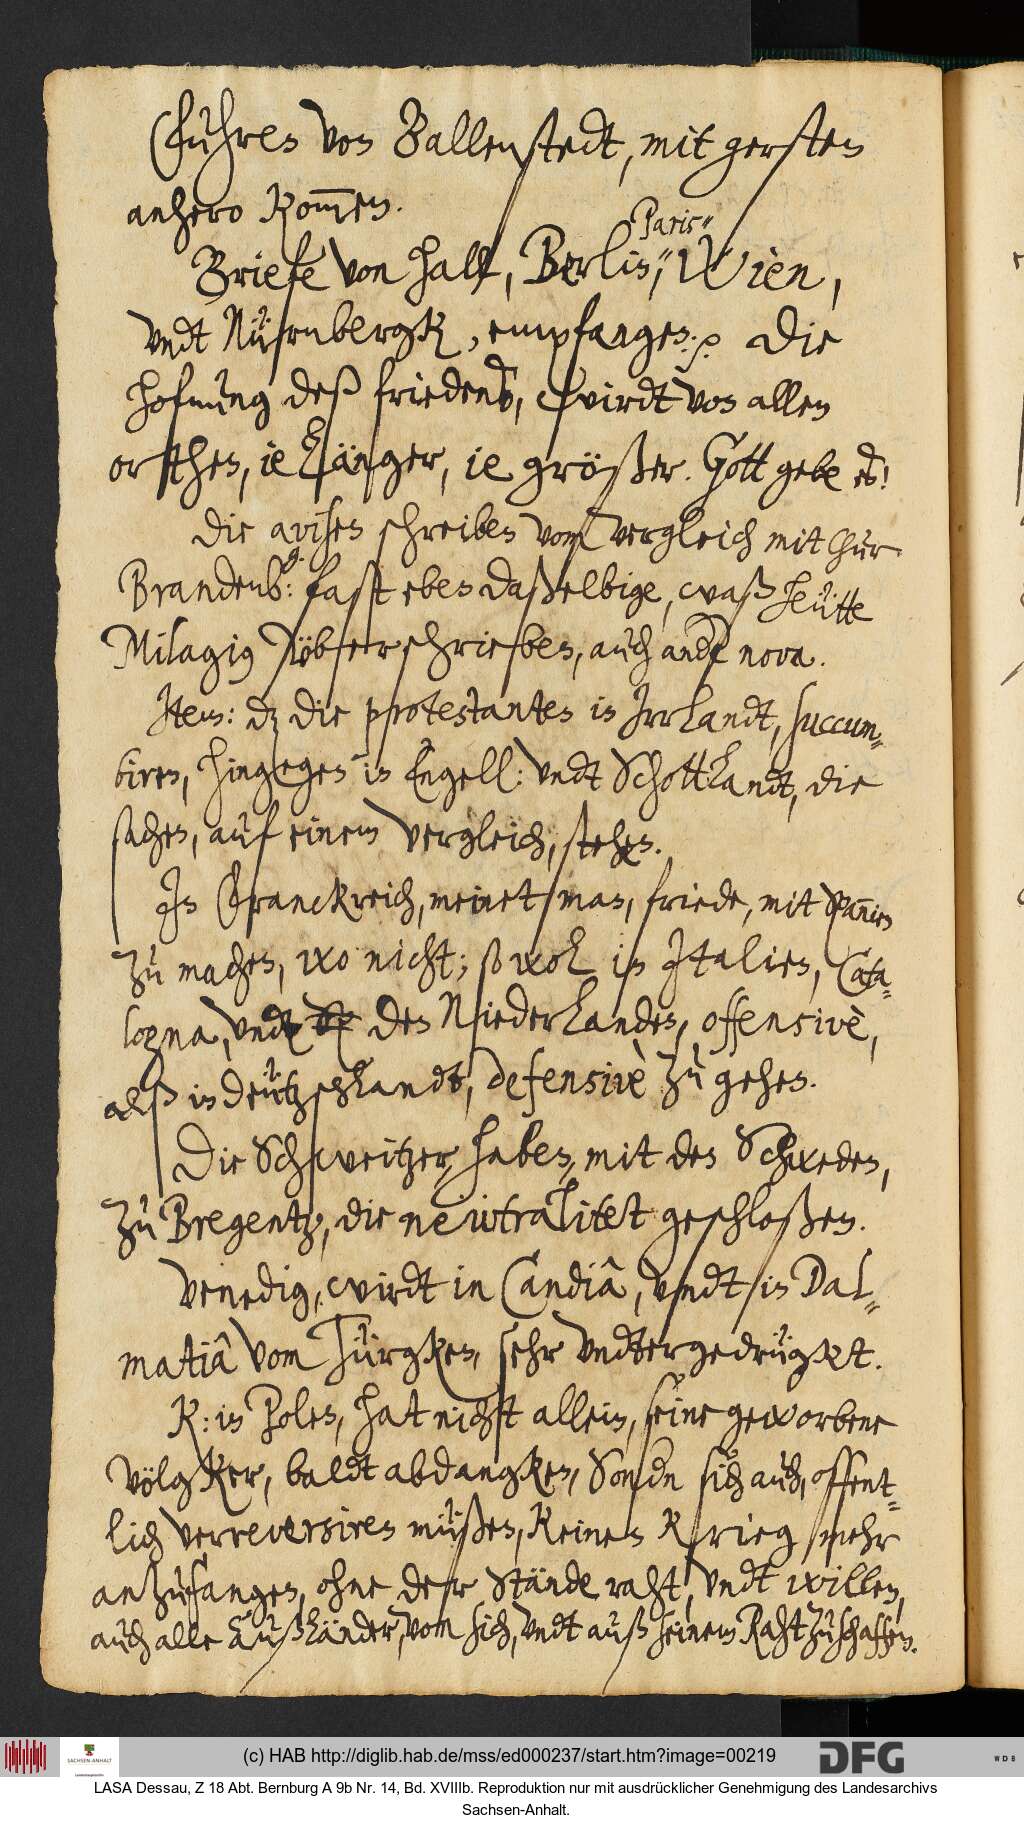 Fuhren von Ballenstedt, mit gersten
anhero kom̅en.
Paris"
Briefe von Hall, Berlin," Wien,
vndt Nürnbergk, empfangen: Die
hofnung deß friedens, wirdt von allen
orthen, ie länger, ie größer. Gott gebe es!
Die avisen schreiben vom vergleich mit Chur
Brandenb: fast eben daßelbige, waß heütte
Milagius überschrieben, auch andre nova.
Item: dz die protestanten in Irrlandt, succum=
biren, hingegen in Engell: vndt Schottlandt, die
sachen, auf einem vergleich, stehen.
In Franckreich, meinet man, friede, mit Span̅ien
zu machen, wo nicht; so wol in Italien, Cata=
logna, vndt den Niederlanden, offensivè,
alß in deützschlandt, defensivè zu gehen.
Die Schweitzer, haben, mit den Schweden,
zu Bregentz, die neutralitet geschloßen.
Venedig, wirdt in Candiâ, vndt in Dal=
matiâ vom Türgken, sehr vndtergedrügkt.
K: in Polen, hat nicht allein, seine geworbene
völgker, baldt abdangken, Sondern sich auch, offent=
lich verreversiren müßen, keinen Krieg mehr
anzufangen, ohne der Stände raht, vndt willen,
auch alle außländer, von sich, vndt auß seinem Raht zu schaffen.
SACHSEN-ANHALT
(c) HAB http://diglib.hab.de/mss/ed000237/start.htm?image=00219
DFG
WDB
LASA Dessau, Z 18 Abt. Bernburg A 9b Nr. 14, Bd. XVIIIb. Reproduktion nur mit ausdrücklicher Genehmigung des Landesarchivs
Sachsen-Anhalt.